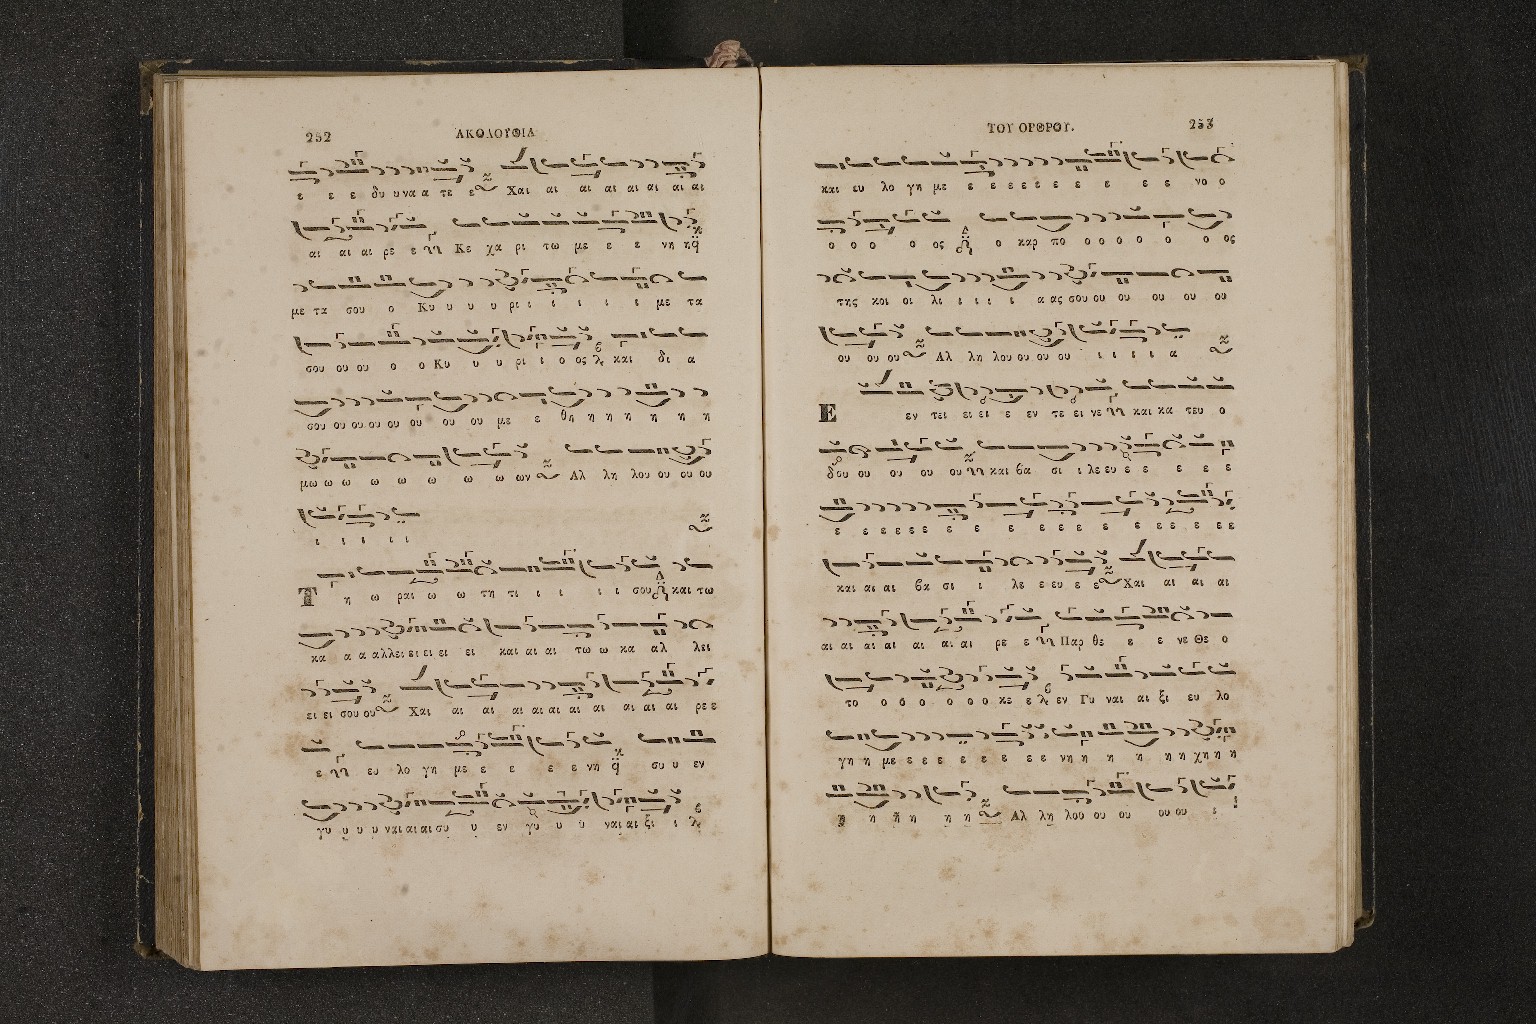 252
ΑΚΟΛΟΥΘΙΑ
ε ε ε δυ υ να α τε ε Χαι αι αι αι αι αι αι αι
αι αι αι ρε ε Κε χα ρι τω με ε ε νη η
με τα σου ο Κυ υ υ υ ρι ι ι ι ι ι με τα
σου ου ου ο ο Κυ υ υ ρι ι ο ος και δι α
σου ου ου ου ου ου ου ου με ε θη η η η η η η
μω ω ω ω ω ω ω ων Αλ λη λου ου ου ου
ι ι ι ι ι
Τ η ω ραι ω ω τη τι ι ι ι ι σου και τω
κα α α αλλει ει ει ει ει και αι αι τω ω κα αλ λει
ει ει σου ου Χαι αι αι αι αι αι αι αι αι αι ρε ε
ε ευ λο γη με ε ε ε ε νη συ υ εν
γυ υ υ υ ναι αι αι συ υ εν γυ υ υ ναι αι ξι ι
ΤΟΥ ΟΡΘΡΟΥ.
253
και ευ λο γη με ε ε ε ε ε ε ε ε ε ε νο ο
ο ο ο ο ος ο καρ πο ο ο ο ο ο ο ος
της κοι οι λι ι ι ι ι α ας σου ου ου ου ου ου
ου ου ου Αλ λη λου ου ου ου ι ι ι ι α
Ε εν τει ει ει ε εν τε ει νε και κα τευ ο
δου ου ου ου ου και βα σι ι λε ευ ε ε ε ε ε
ε ε ε ε ε ε ε ε ε ε ε ε ε ε ε ε ε
και αι αι βα σι ι λε ε ευ ε ε Χαι αι αι αι
αι αι αι αι αι αι αι ρε ε Παρ θε ε ε νε Θε ο
το ο ο ο ο ο ο κε ε εν Γυ ναι αι ξι ευ λο
γη η με ε ε ε ε ε ε ε νη η η η η χη η η
η η η η η η Αλ λη λου ου ου ου ου ι